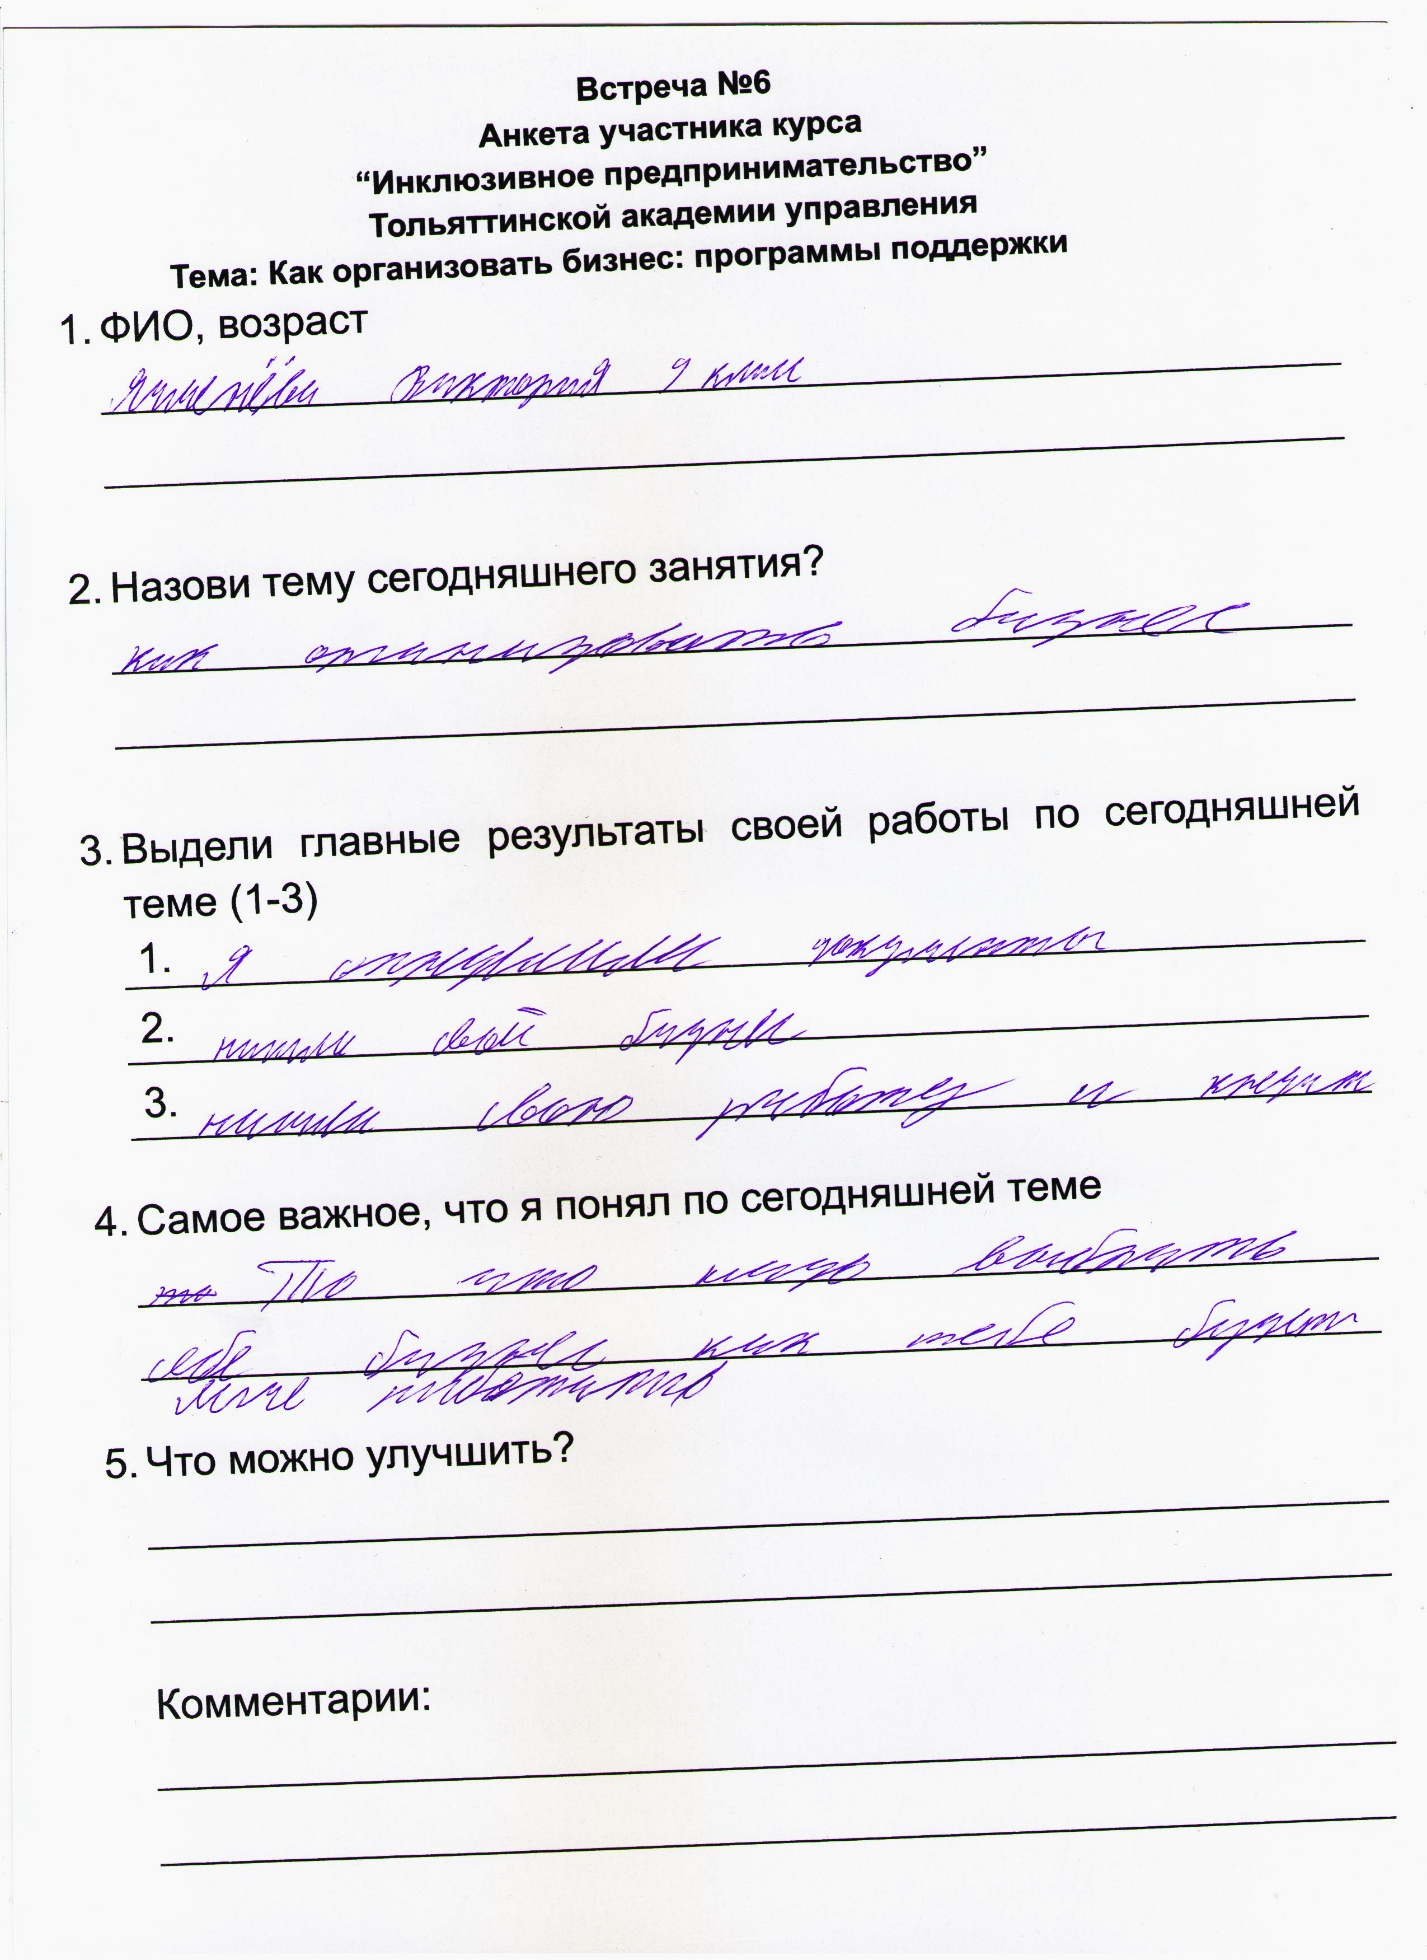 Встреча №6
Анкета участника курса
“Инклюзивное предпринимательство”
Тольяттинской академии управления
Тема: Как организовать бизнес: программы поддержки
1. ФИО, возраст
Виктория 9 класс
2. Назови тему сегодняшнего занятия?
как организовать бизнес
3. Выдели главные результаты своей работы по сегодняшней
теме (1-3)
1. Я документы
2. нашли свой бизнес
3. нашли свою работу и кредит
4. Самое важное, что я понял по сегодняшней теме
то То что надо выбрать
себе бизнес как тебе будет
легче работать
5. Что можно улучшить?
Комментарии: